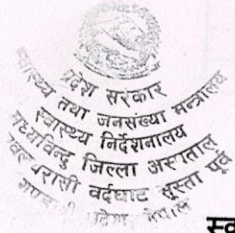 प्रदेश सरकार
स्वास्थ्य तथा जनसंख्या मन्त्रालय
स्वास्थ्य निर्देशनालय
मध्यविन्दु जिल्ला अस्पताल
नवलपरासी वर्दघाट सुस्ता पूर्व
स्व